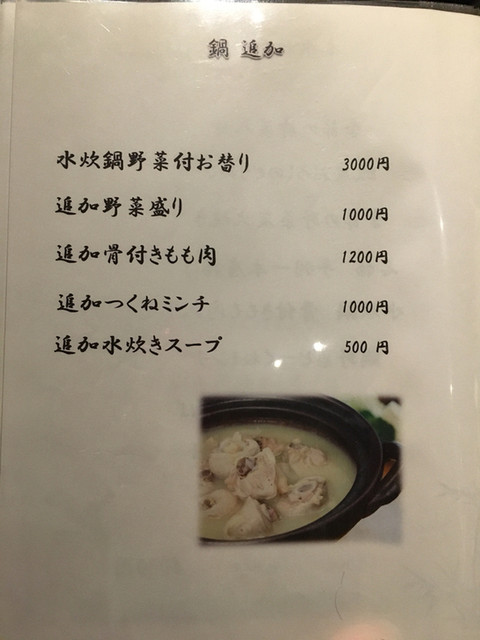 鍋 追加
水炊鍋野菜付お替り 3000円
追加野菜盛り 1000円
追加骨付きもも肉 1200円
追加つくねミンチ 1000円
追加水炊きスープ 500 円